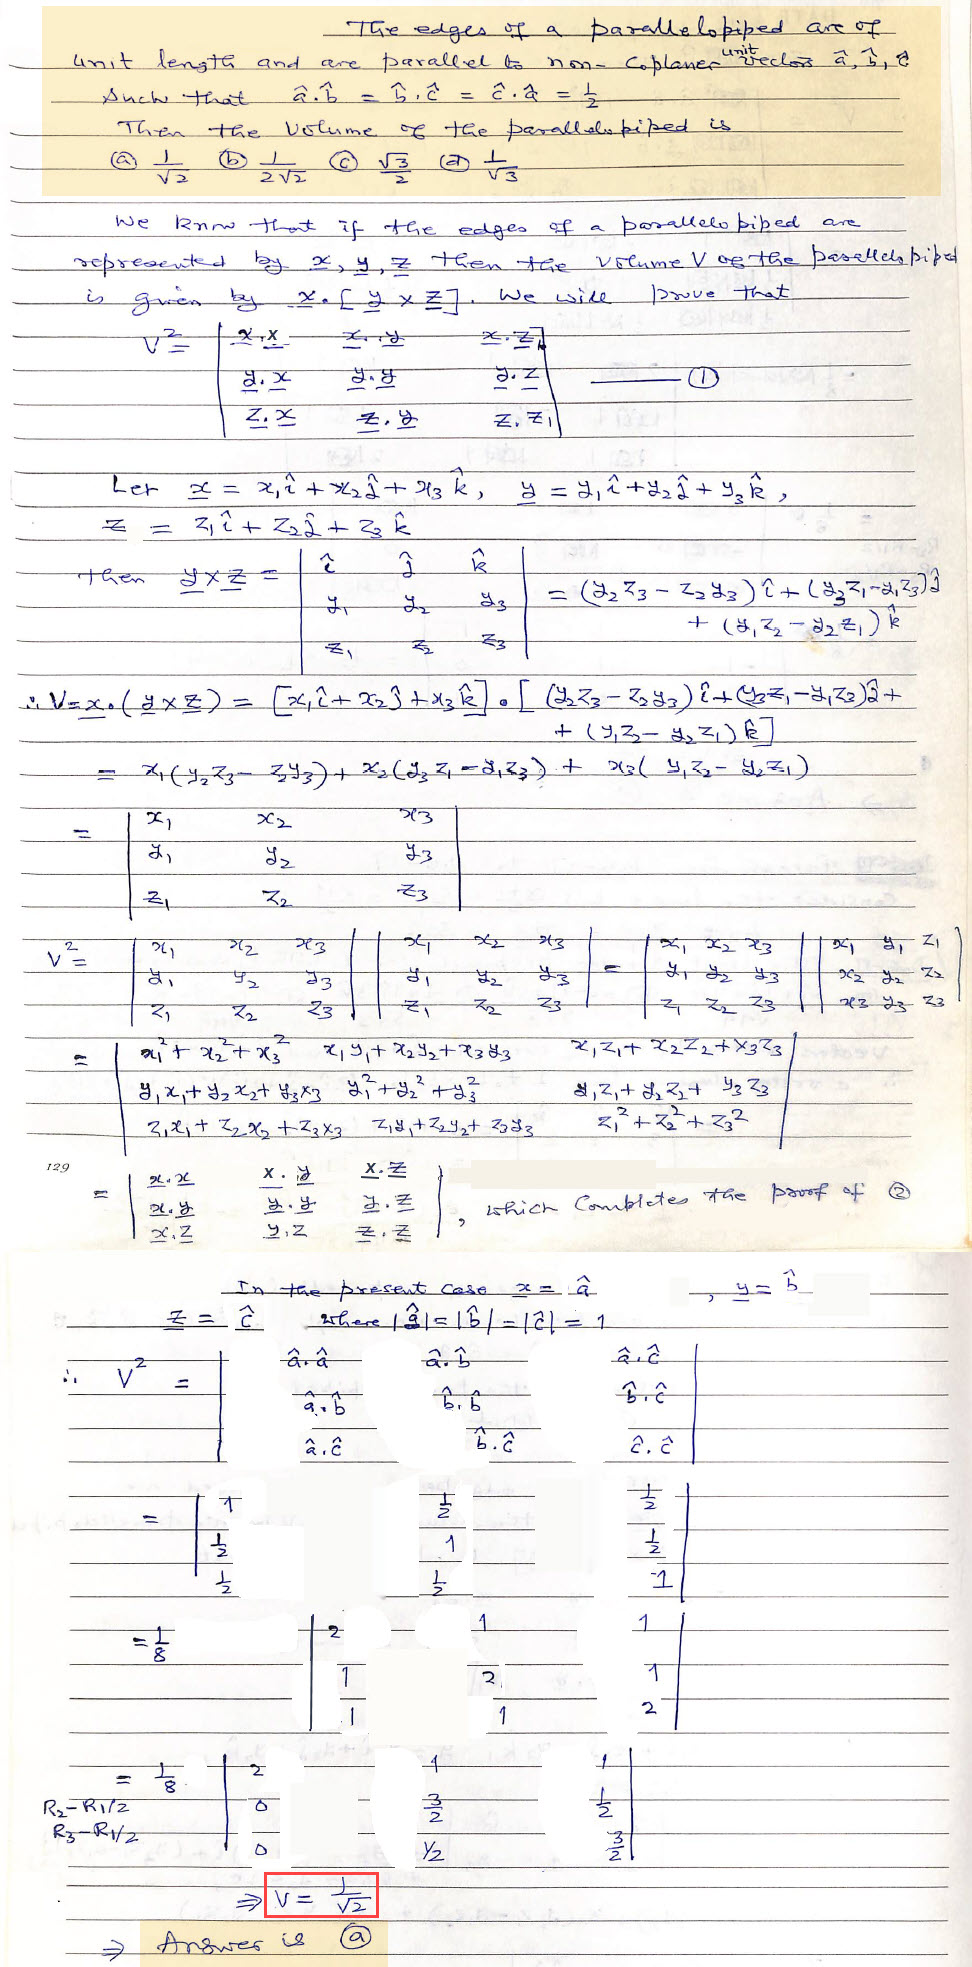 The edges of a parallelopiped are of
unit length and are parallel to non-coplaner unit vectors â, b̂, ĉ
such that â.b̂ = b̂.ĉ = ĉ.â = 1/2
Then the volume of the parallelopiped is
(a) 1/√2 (b) 1/2√2 (c) √3/2 (d) 1/√3
We know that if the edges of a parallelopiped are
represented by x, y, z then the volume V of the parallelopiped
is given by x.[y×z]. We will prove that
V² = | x.x x.y x.z |
| y.x y.y y.z | ——— ①
| z.x z.y z.z |
Let x = x₁î + x₂ĵ + x₃k̂, y = y₁î + y₂ĵ + y₃k̂,
z = z₁î + z₂ĵ + z₃k̂
then y×z = | î ĵ k̂ | = (y₂z₃ – z₂y₃)î + (y₃z₁ – y₁z₃)ĵ
| y₁ y₂ y₃ | + (y₁z₂ – y₂z₁)k̂
| z₁ z₂ z₃ |
∴ V = x.(y×z) = [x₁î + x₂ĵ + x₃k̂].[(y₂z₃ – z₂y₃)î + (y₃z₁ – y₁z₃)ĵ +
+ (y₁z₂ – y₂z₁)k̂]
= x₁(y₂z₃ – z₂y₃) + x₂(y₃z₁ – y₁z₃) + x₃(y₁z₂ – y₂z₁)
= | x₁ x₂ x₃ |
| y₁ y₂ y₃ |
| z₁ z₂ z₃ |
V² = | x₁ x₂ x₃ | | x₁ x₂ x₃ | = | x₁ x₂ x₃ | | x₁ y₁ z₁ |
| y₁ y₂ y₃ | | y₁ y₂ y₃ | | y₁ y₂ y₃ | | x₂ y₂ z₂ |
| z₁ z₂ z₃ | | z₁ z₂ z₃ | | z₁ z₂ z₃ | | x₃ y₃ z₃ |
= | x₁² + x₂² + x₃² x₁y₁ + x₂y₂ + x₃y₃ x₁z₁ + x₂z₂ + x₃z₃ |
| y₁x₁ + y₂x₂ + y₃x₃ y₁² + y₂² + y₃² y₁z₁ + y₂z₂ + y₃z₃ |
| z₁x₁ + z₂x₂ + z₃x₃ z₁y₁ + z₂y₂ + z₃y₃ z₁² + z₂² + z₃² |
129
= | x.x x.y x.z |
| x.y y.y y.z | , which completes the proof of ②
| x.z y.z z.z |
In the present case x = â , y = b̂
z = ĉ where |â| = |b̂| = |ĉ| = 1
∴ V² = | â.â â.b̂ â.ĉ |
| â.b̂ b̂.b̂ b̂.ĉ |
| â.ĉ b̂.ĉ ĉ.ĉ |
= | 1 1/2 1/2 |
| 1/2 1 1/2 |
| 1/2 1/2 1 |
= 1/8 | 2 1 1 |
| 1 2 1 |
| 1 1 2 |
= 1/8 | 2 1 1 |
R₂–R₁/2 | 0 3/2 1/2 |
R₃–R₁/2 | 0 1/2 3/2 |
⇒ V = 1/√2
⇒ Answer is (a)